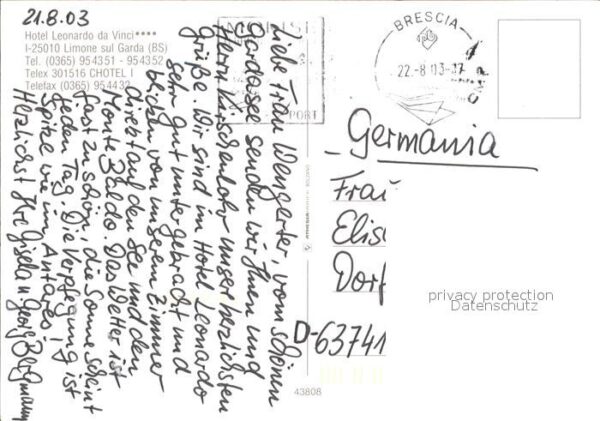 21.8.03
Hotel Leonardo da Vinci****
I-25010 Limone sul Garda (BS)
Tel. (0365) 954351 - 954352
Telex 301516 CHOTEL I
Telefax (0365) 954432
Liebe Frau Wengerter, vom schönen
Gardasee senden wir Ihnen und
Herrn unser herzlichsten
Grüße. Wir sind im Hotel Leonardo
sehr gut untergebracht und
blicken von unserem Zimmer
direkt auf den See und den
Monte Baldo. Das Wetter ist
fast zu schön, die Sonne scheint
jeden Tag. Die Verpflegung ist
Spitze wie im Antares!
Herzlichst Ihre Gisela u. Georg Bergmann
BRESCIA
22.-8 03-17
Germania
Frau
Elis
Dorf
D-63741
privacy protection
Datenschutz
43808